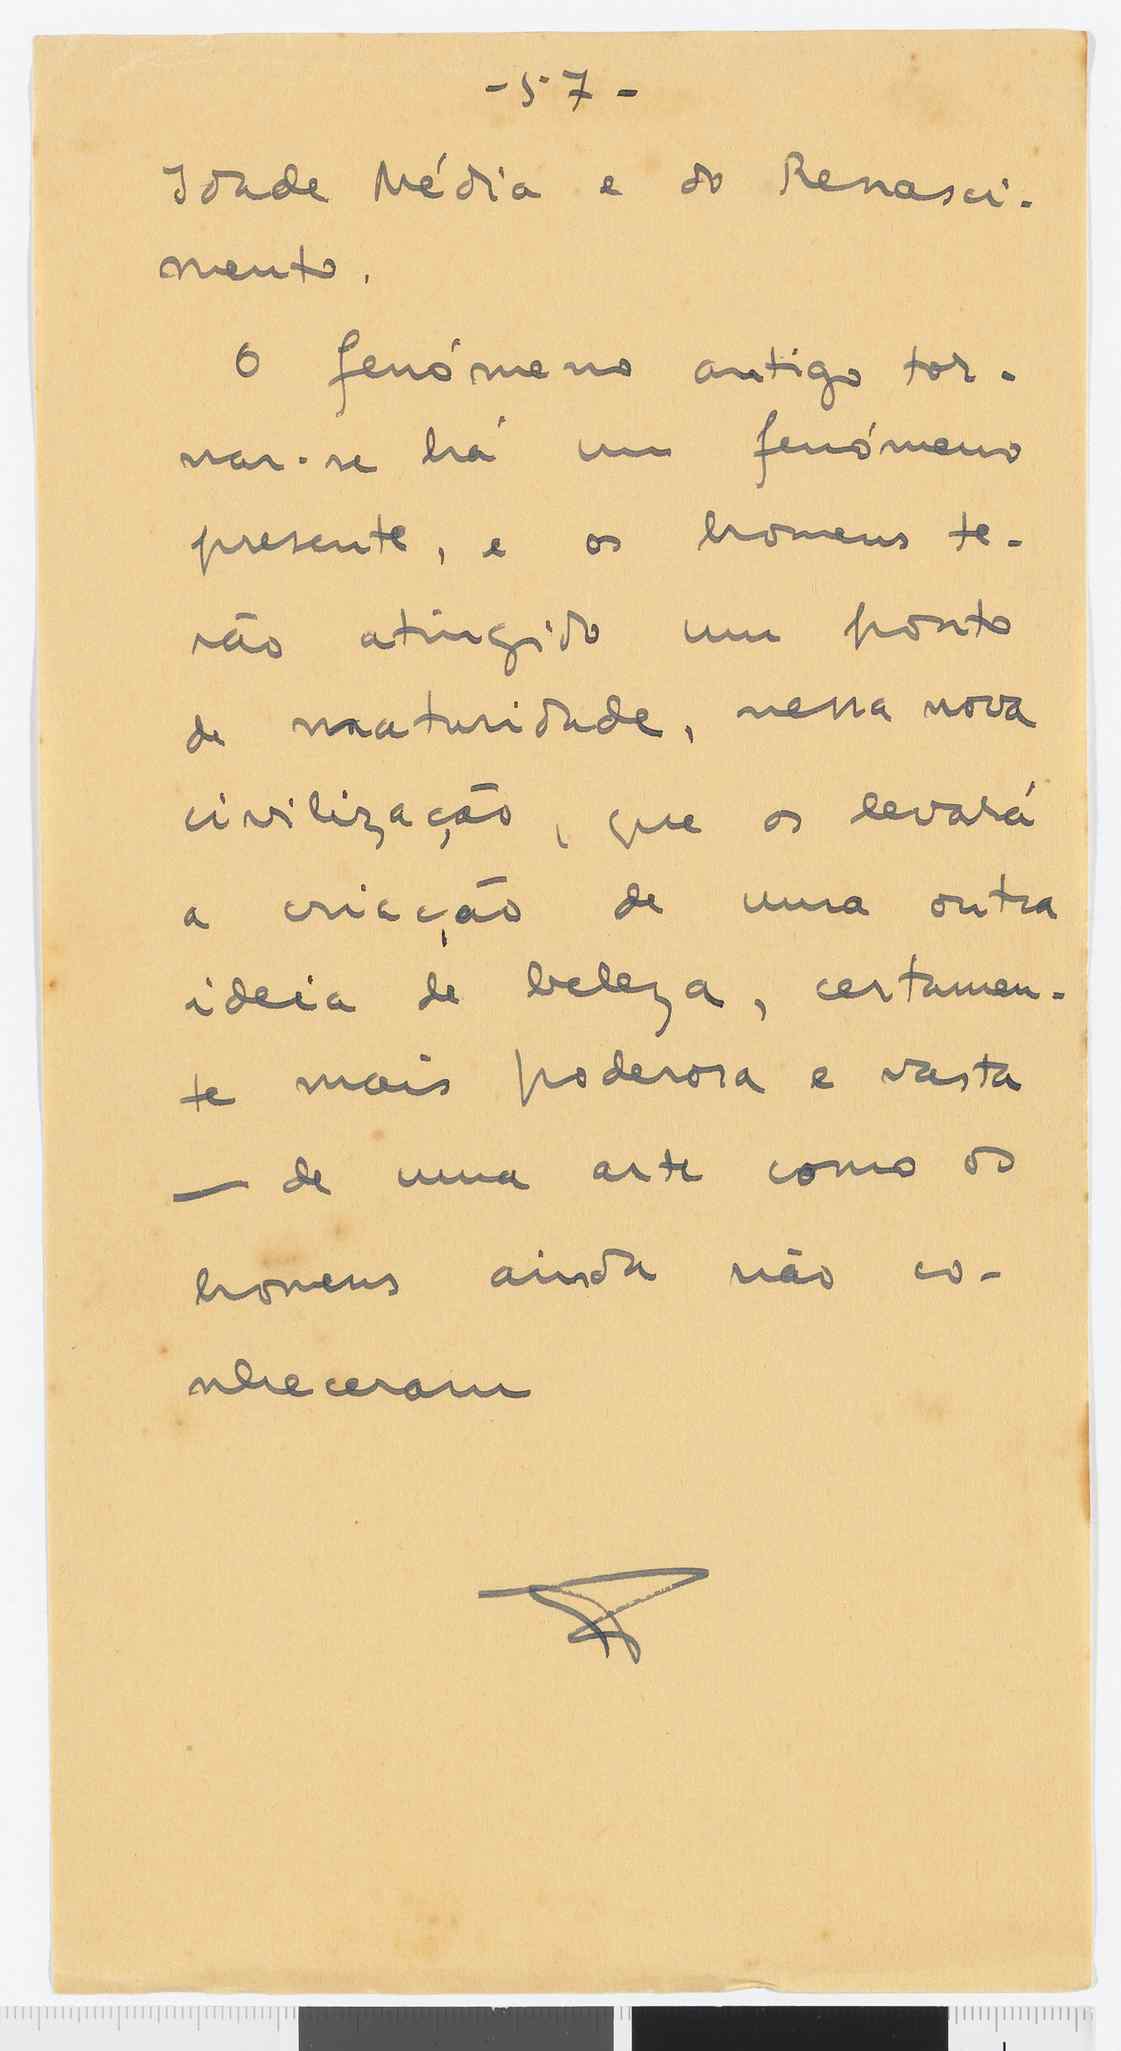 - 57 -
Idade Média e do Renasci-
mento.
O fenómeno antigo tor-
nar-se há um fenómeno
presente, e os homens te-
rão atingido um ponto
de maturidade, nessa nova
civilização, que os levará
a criacção de uma outra
ideia de beleza, certamen-
te mais poderosa e vasta
— de uma arte como os
homens ainda não co-
nheceram